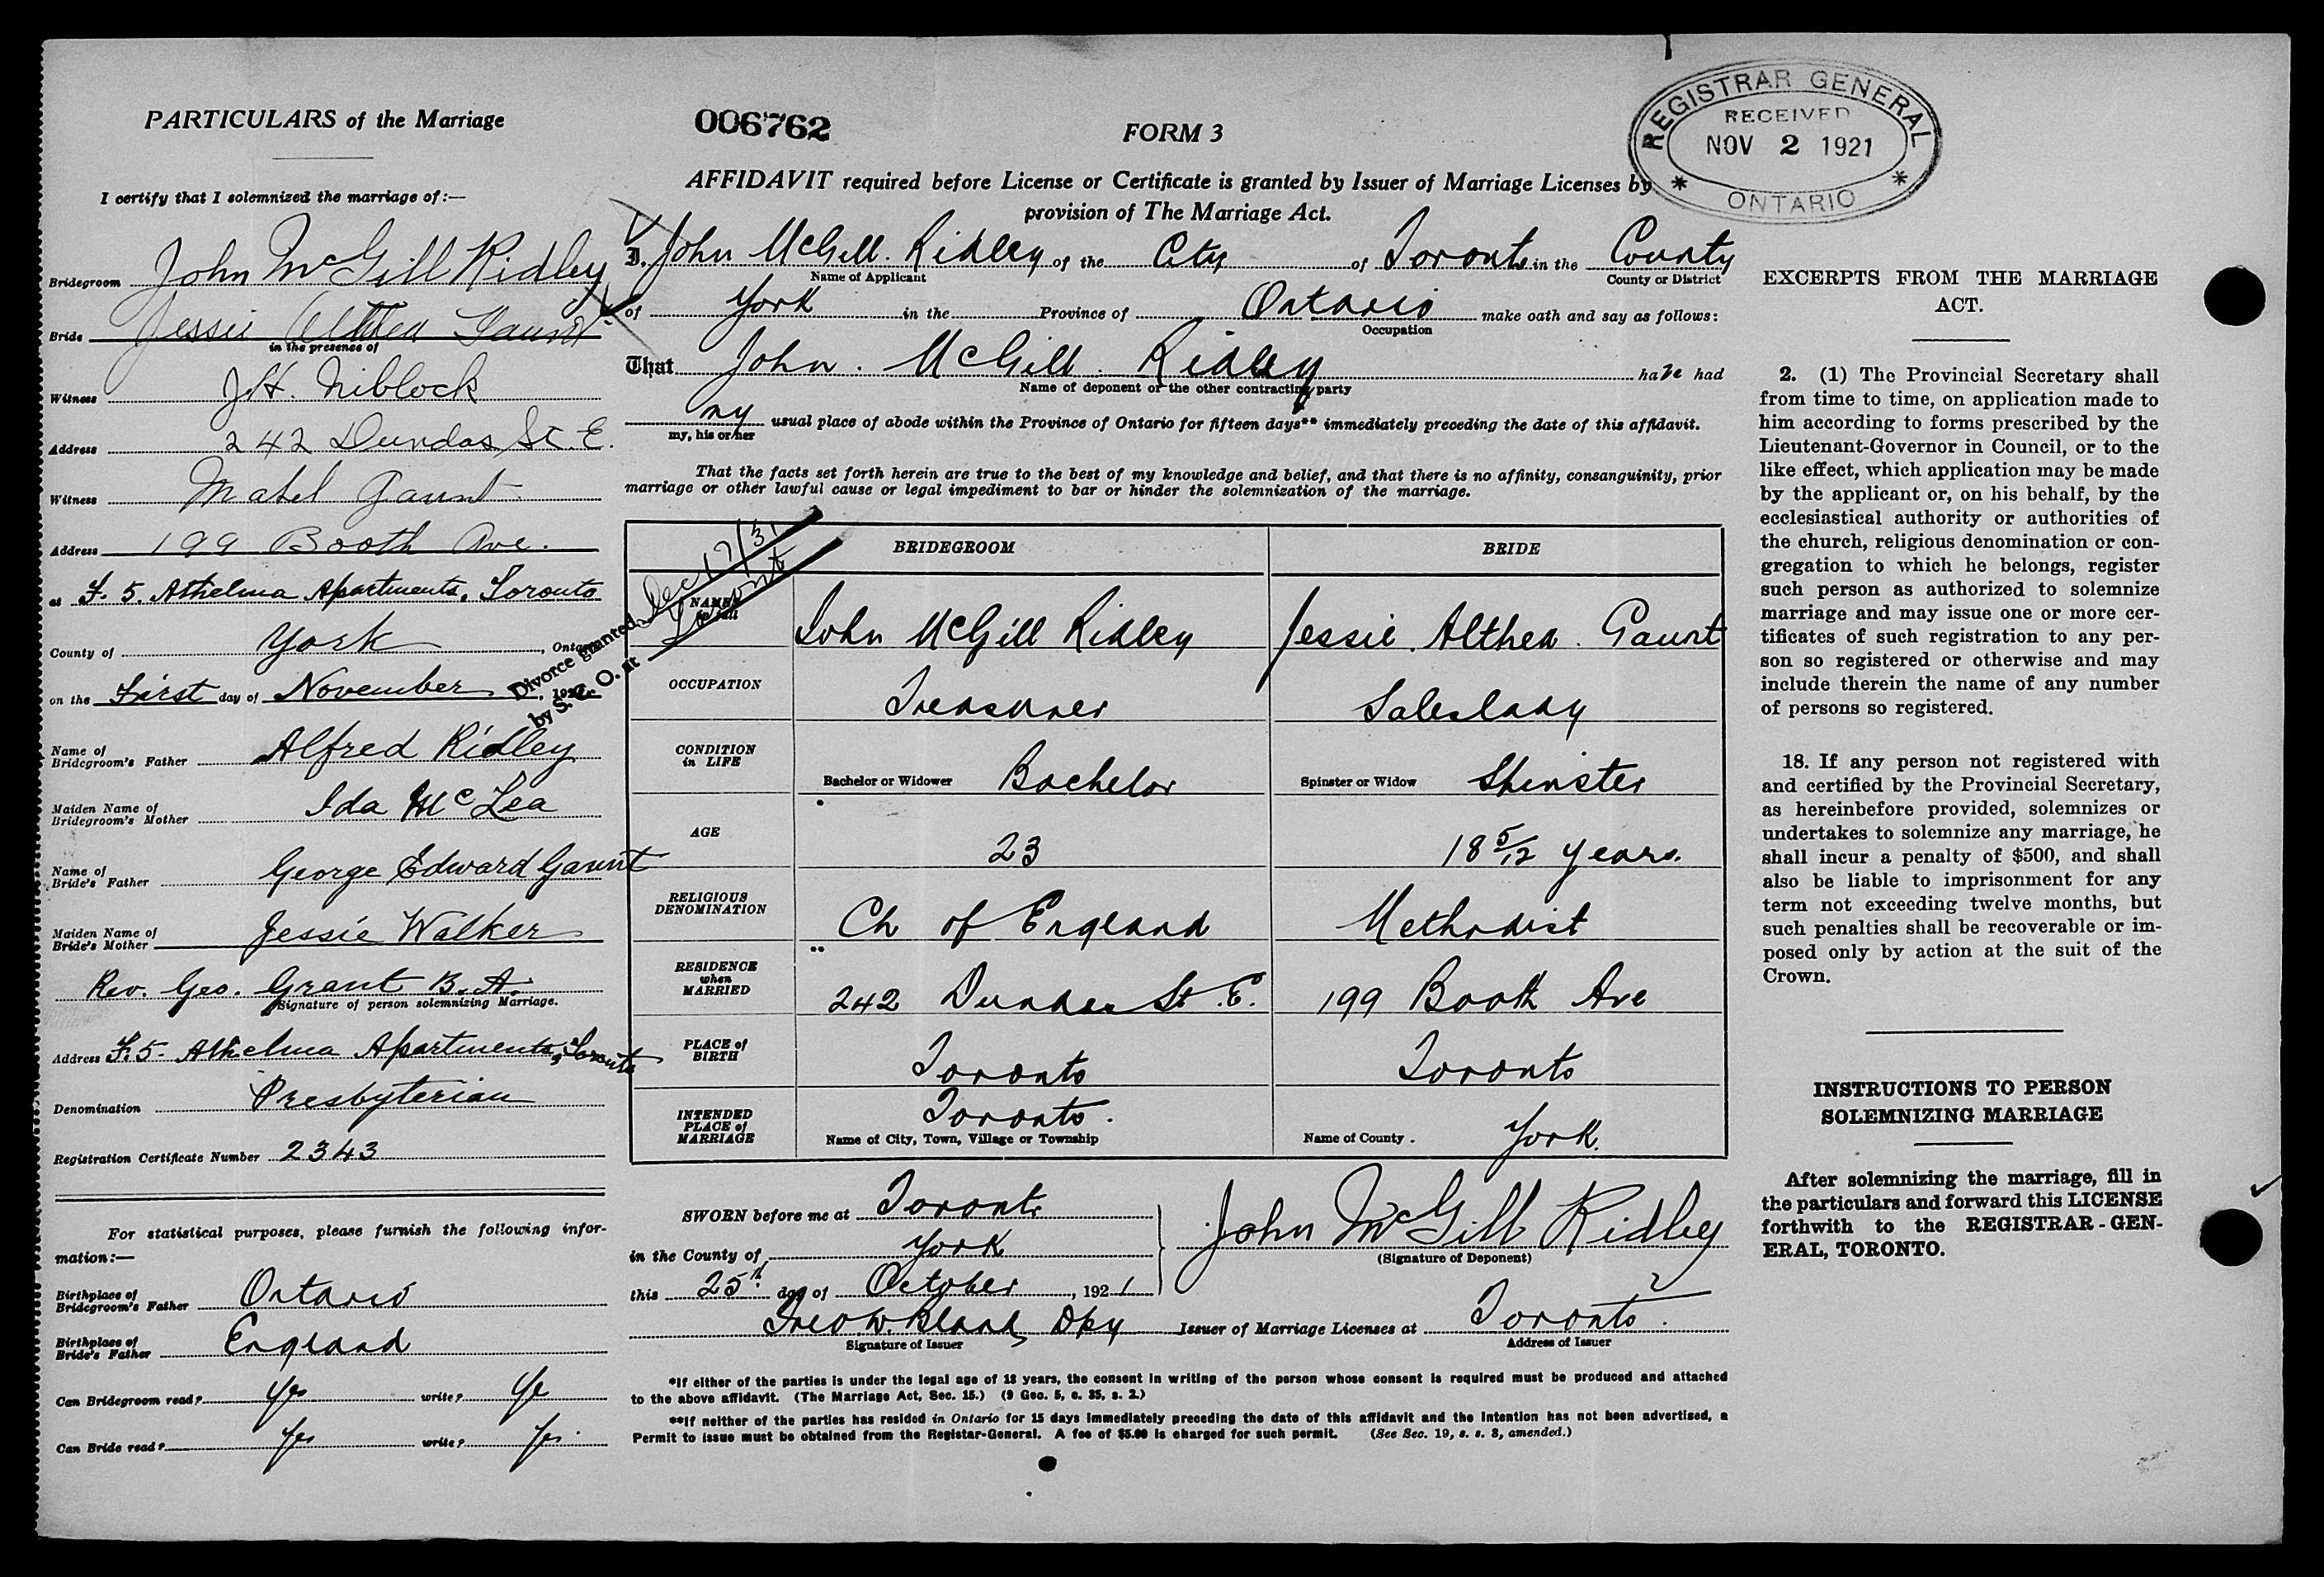 PARTICULARS of the Marriage
I certify that I solemnized the marriage of:—
Bridegroom John McGill Ridley
Bride Jessie Althea Gaunt
in the presence of
Witness J.H. Niblock
Address 242 Dundas St. E.
Witness Mabel Gaunt
Address 199 Booth Ave.
at F. 5. Athelma Apartments, Toronto
County of York, Ontario
on the First day of November, 192
Divorce granted Dec 17/31
by S. C. O. at Toront
Name of Bridegroom's Father Alfred Ridley
Maiden Name of Bridegroom's Mother Ida McLea
Name of Bride's Father George Edward Gaunt
Maiden Name of Bride's Mother Jessie Walker
Rev. Geo. Grant B.A.
Signature of person solemnizing Marriage.
Address F.5. Athelma Apartments, Toronto
Denomination Presbyterian
Registration Certificate Number 2343
For statistical purposes, please furnish the following infor-
mation:—
Birthplace of Bridegroom's Father Ontario
Birthplace of Bride's Father England
Can Bridegroom read? Yes write? Ye
Can Bride read? Yes write? Yes
006762
FORM 3
AFFIDAVIT required before License or Certificate is granted by Issuer of Marriage Licenses by
provision of The Marriage Act.
I, John McGill. Ridley of the City of Toronto in the County
Name of Applicant County or District
of York in the Province of Ontario make oath and say as follows:
Occupation
That John. McGill. Ridley have had
Name of deponent or the other contracting party
my usual place of abode within the Province of Ontario for fifteen days** immediately preceding the date of this affidavit.
my, his or her
That the facts set forth herein are true to the best of my knowledge and belief, and that there is no affinity, consanguinity, prior
marriage or other lawful cause or legal impediment to bar or hinder the solemnization of the marriage.
BRIDEGROOM BRIDE
NAMES in full John McGill Ridley Jessie. Althea. Gaunt
OCCUPATION Treasurer Saleslady
CONDITION in LIFE Bachelor or Widower Bachelor Spinster or Widow Spinster
AGE 23 18 5/12 years.
RELIGIOUS DENOMINATION Ch of England Methodist
RESIDENCE when MARRIED 242 Dundas St. E. 199 Booth Ave
PLACE of BIRTH Toronto Toronto
INTENDED PLACE of MARRIAGE Toronto. Name of City, Town, Village or Township Name of County. York.
SWORN before me at Toronto
in the County of York
this 25th day of October, 1921
John McGill Ridley
(Signature of Deponent)
W. Bland, Dpy Issuer of Marriage Licenses at Toronto.
Signature of Issuer Address of Issuer
*If either of the parties is under the legal age of 18 years, the consent in writing of the person whose consent is required must be produced and attached
to the above affidavit. (The Marriage Act, Sec. 15.) (9 Geo. 5, c. 35, s. 2.)
**If neither of the parties has resided in Ontario for 15 days immediately preceding the date of this affidavit and the intention has not been advertised, a
Permit to issue must be obtained from the Registar-General. A fee of $5.00 is charged for such permit. (See Sec. 19, s. s. 3, amended.)
REGISTRAR GENERAL
RECEIVED
NOV 2 1921
* ONTARIO *
EXCERPTS FROM THE MARRIAGE
ACT.
2. (1) The Provincial Secretary shall
from time to time, on application made to
him according to forms prescribed by the
Lieutenant-Governor in Council, or to the
like effect, which application may be made
by the applicant or, on his behalf, by the
ecclesiastical authority or authorities of
the church, religious denomination or con-
gregation to which he belongs, register
such person as authorized to solemnize
marriage and may issue one or more cer-
tificates of such registration to any per-
son so registered or otherwise and may
include therein the name of any number
of persons so registered.
18. If any person not registered with
and certified by the Provincial Secretary,
as hereinbefore provided, solemnizes or
undertakes to solemnize any marriage, he
shall incur a penalty of $500, and shall
also be liable to imprisonment for any
term not exceeding twelve months, but
such penalties shall be recoverable or im-
posed only by action at the suit of the
Crown.
INSTRUCTIONS TO PERSON
SOLEMNIZING MARRIAGE
After solemnizing the marriage, fill in
the particulars and forward this LICENSE
forthwith to the REGISTRAR-GEN-
ERAL, TORONTO.